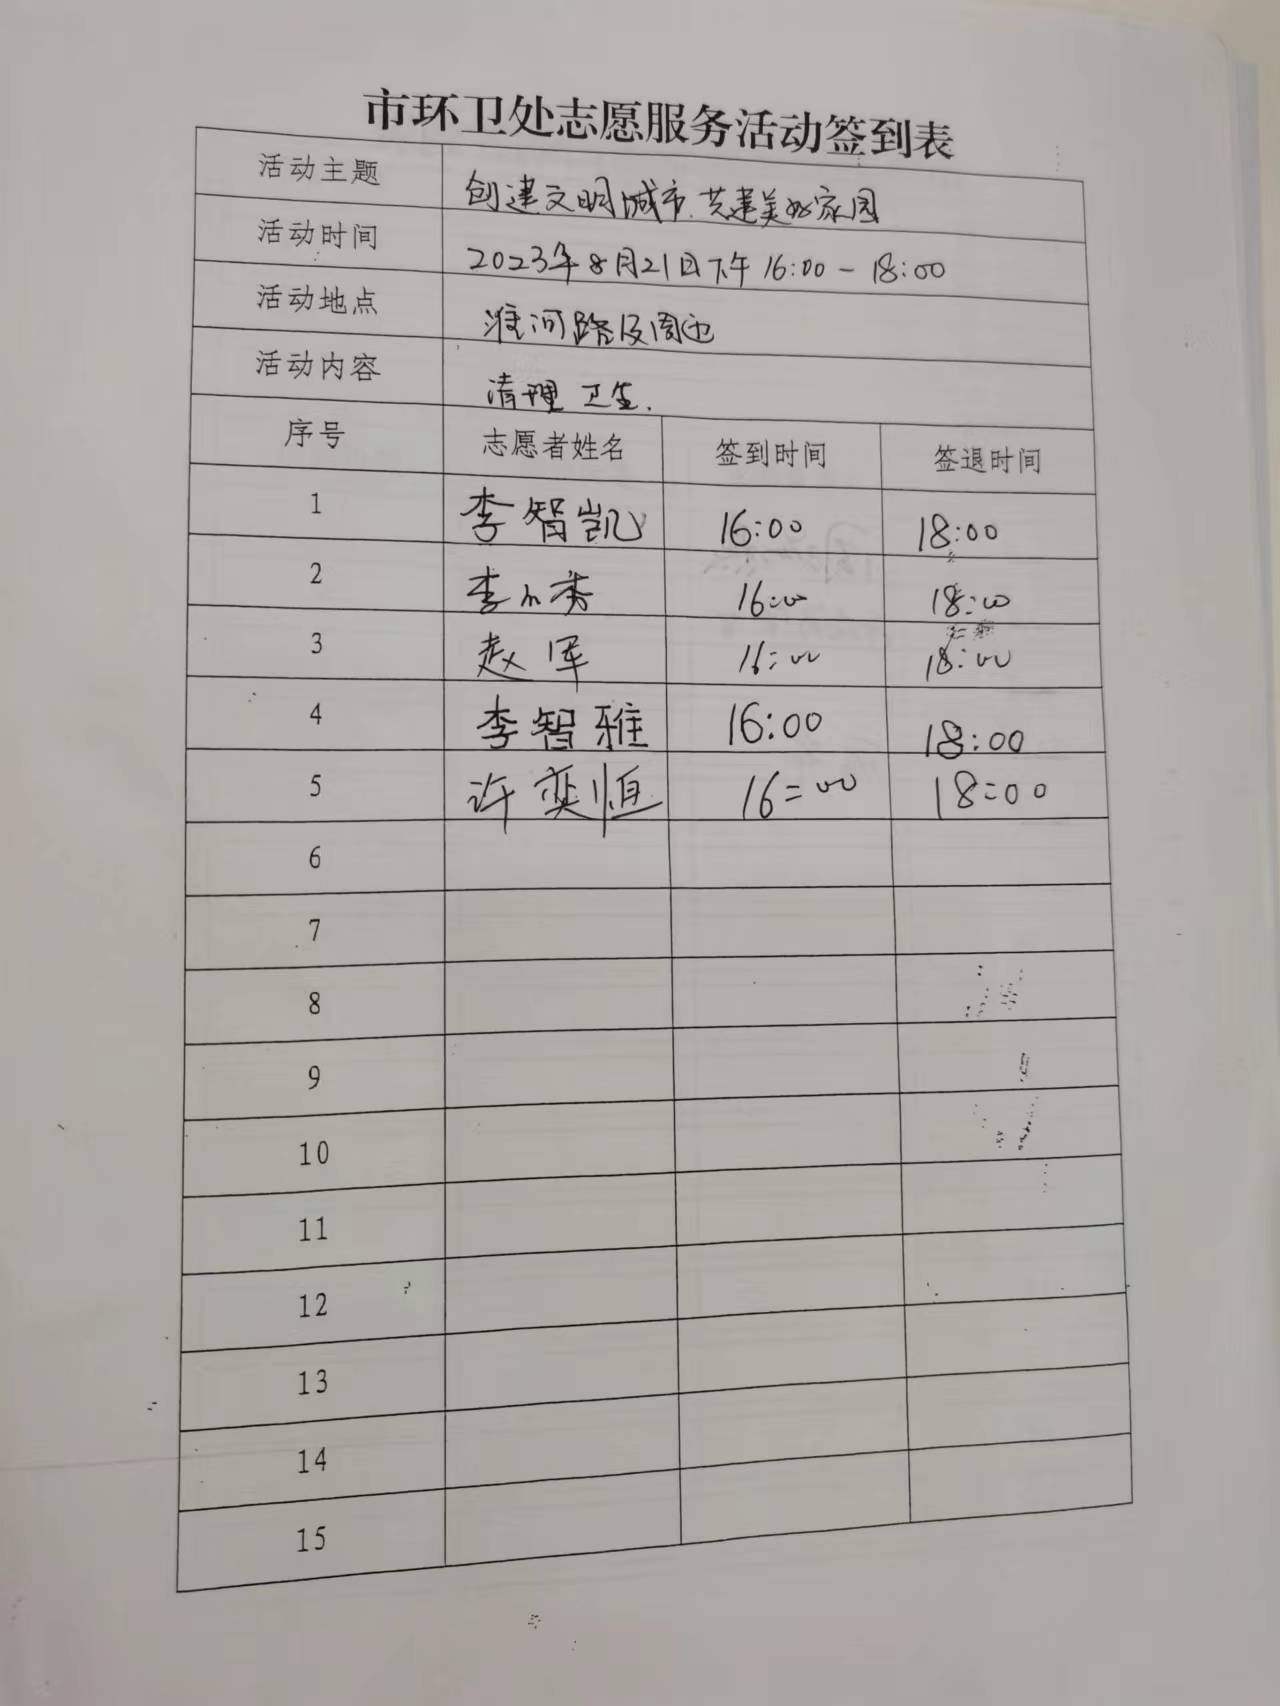 市环卫处志愿服务活动签到表
活动主题 创建文明城市.共建美好家园
活动时间 2023年8月21日下午16:00-18:00
活动地点 淮河路及周边
活动内容 清理卫生.
序号 志愿者姓名 签到时间 签退时间
1 李智凯 16:00 18:00
2 李小秀 16:00 18:00
3 赵军 16:00 18:00
4 李智雅 16:00 18:00
5 许奕恒 16:00 18:00
6
7
8
9
10
11
12
13
14
15